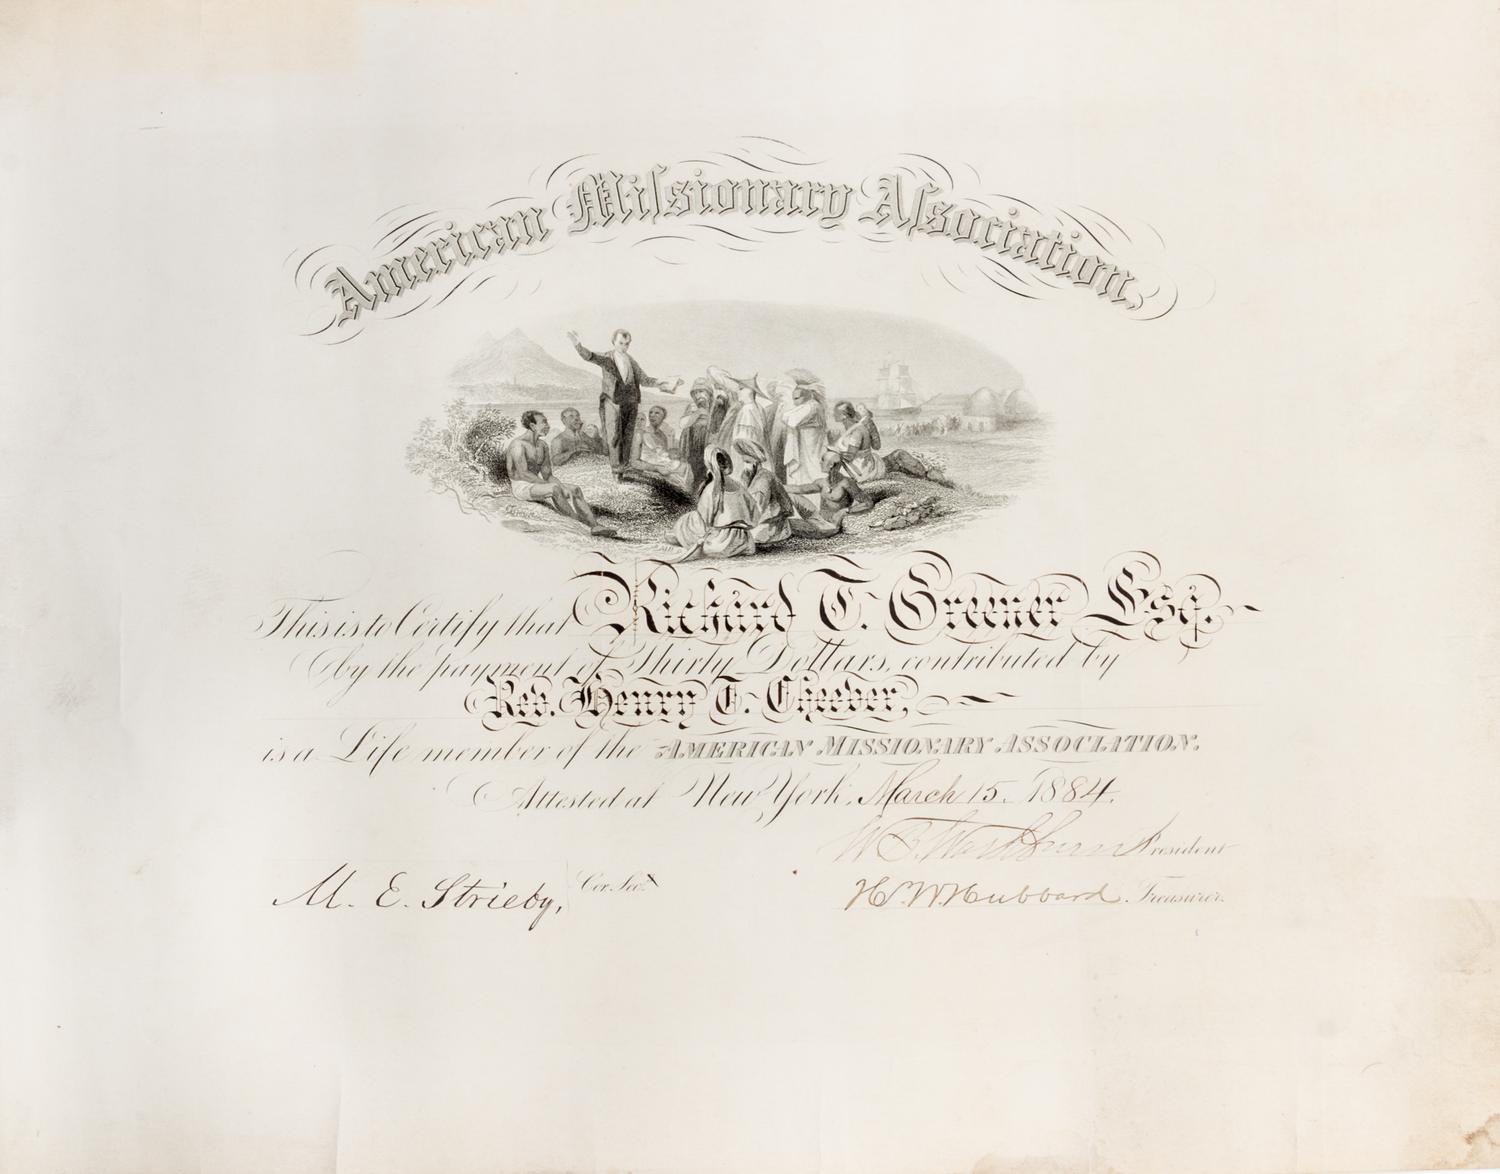 American Miſsionary Aſsociation.
This is to Certify that Richard T. Greener Esq.
by the payment of Thirty Dollars, contributed by
Rev. Henry T. Cheever,
is a Life member of the AMERICAN MISSIONARY ASSOCIATION.
Attested at New York, March 15. 1884.
W. B. Washburn President
M. E. Strieby, Cor. Sec.
H. W. Hubbard Treasurer.